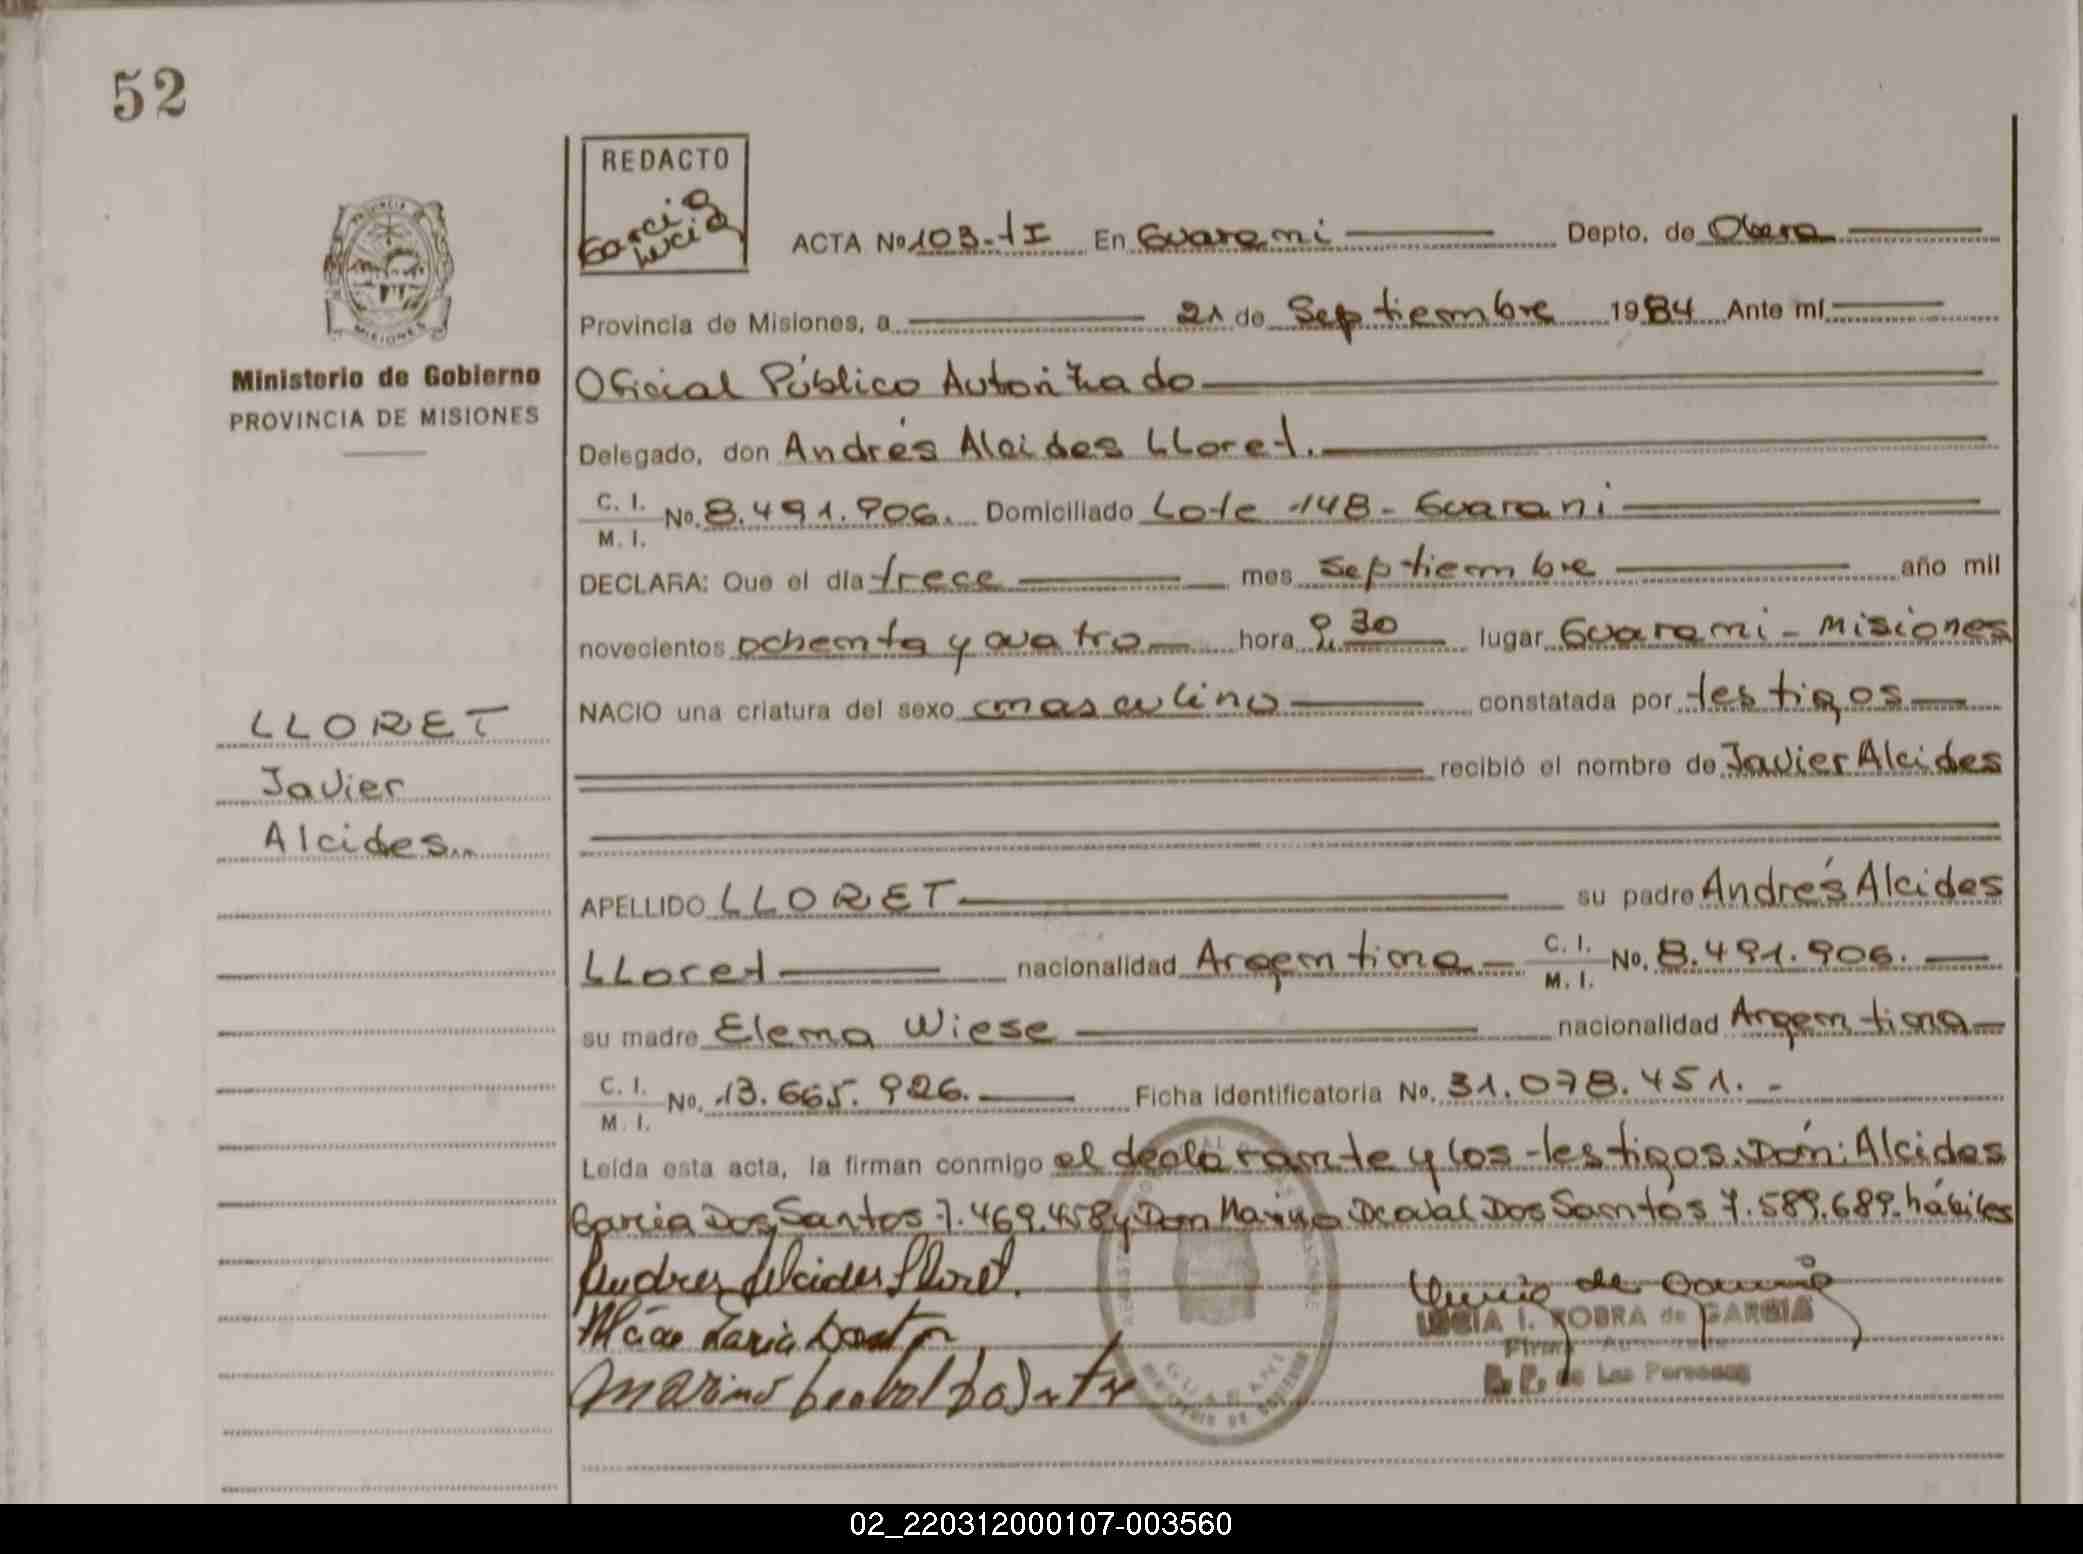 52
REDACTO
Garcia
Lucia
ACTA Nº 103-tI En Guarani Depto. de Obera
PROVINCIA
MISIONES
Provincia de Misiones, a 21 de Septiembre 1984 Ante mí
Ministerio de Gobierno
PROVINCIA DE MISIONES
Oficial Público Autorizado
Delegado, don Andrés Alcides LLoret.
C. I.
M. I. No. 8.491.906. Domiciliado Lote 148 - Guarani
DECLARA: Que el día trece mes septiembre año mil
novecientos ochenta y cuatro hora 9,30 lugar Guarani - Misiones
NACIO una criatura del sexo masculino constatada por testigos
recibió el nombre de Javier Alcides
LLORET
Javier
Alcides..
APELLIDO LLORET su padre Andrés Alcides
LLoret nacionalidad Argentina C. I.
M. I. No. 8.491.906.
su madre Elena Wiese nacionalidad Argentina
C. I.
M. I. No. 13.665.926. Ficha identificatoria No. 31.078.451. -
Leída esta acta, la firman conmigo el declarante y los testigos. Don: Alcides
Garcia Dos Santos 7.469.458 y Don Marino Deoval Dos Santos 7.589.689. hábiles
Andres Alcides Lloret.
Marino
LUCIA I. KOBRA de GARCIA
R. P. de Las Personas
GUARANI
02_220312000107-003560